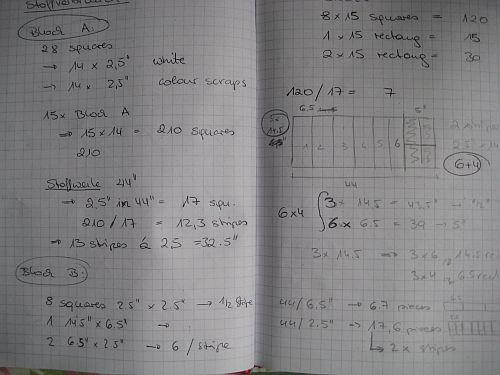 Block A:
28 squares
→ 14 × 2,5" white
→ 14 × 2,5" colour scraps
15 × Block A
⇒ 15 × 14 = 210 squares
210
Stoffweite 44"
→ 2,5" in 44" = 17 squ.
210 / 17 = 12,3 stripes
⇒ 13 stripes à 2,5 = 32.5"
Block B:
8 squares 2.5" × 2.5" → 1/2 stripe
1 14.5" × 6.5" →
2 6.5" × 2.5" → 6 / stripe
8 × 15 squares = 120
1 × 15 rectang = 15
2 × 15 rectang = 30
120 / 17 = 7
6.5 5"
14.5
1 2 3 4 5 6
6+4
44
6×4
3 × 14.5 = 43.5"
6 × 6.5 = 39 → 5"
3 × 14.5 ⇒ 3 × 6
3 × 4
44 / 6.5" → 6.7 pieces
44 / 2.5" ⇒ 17,6 pieces
2 × stripes